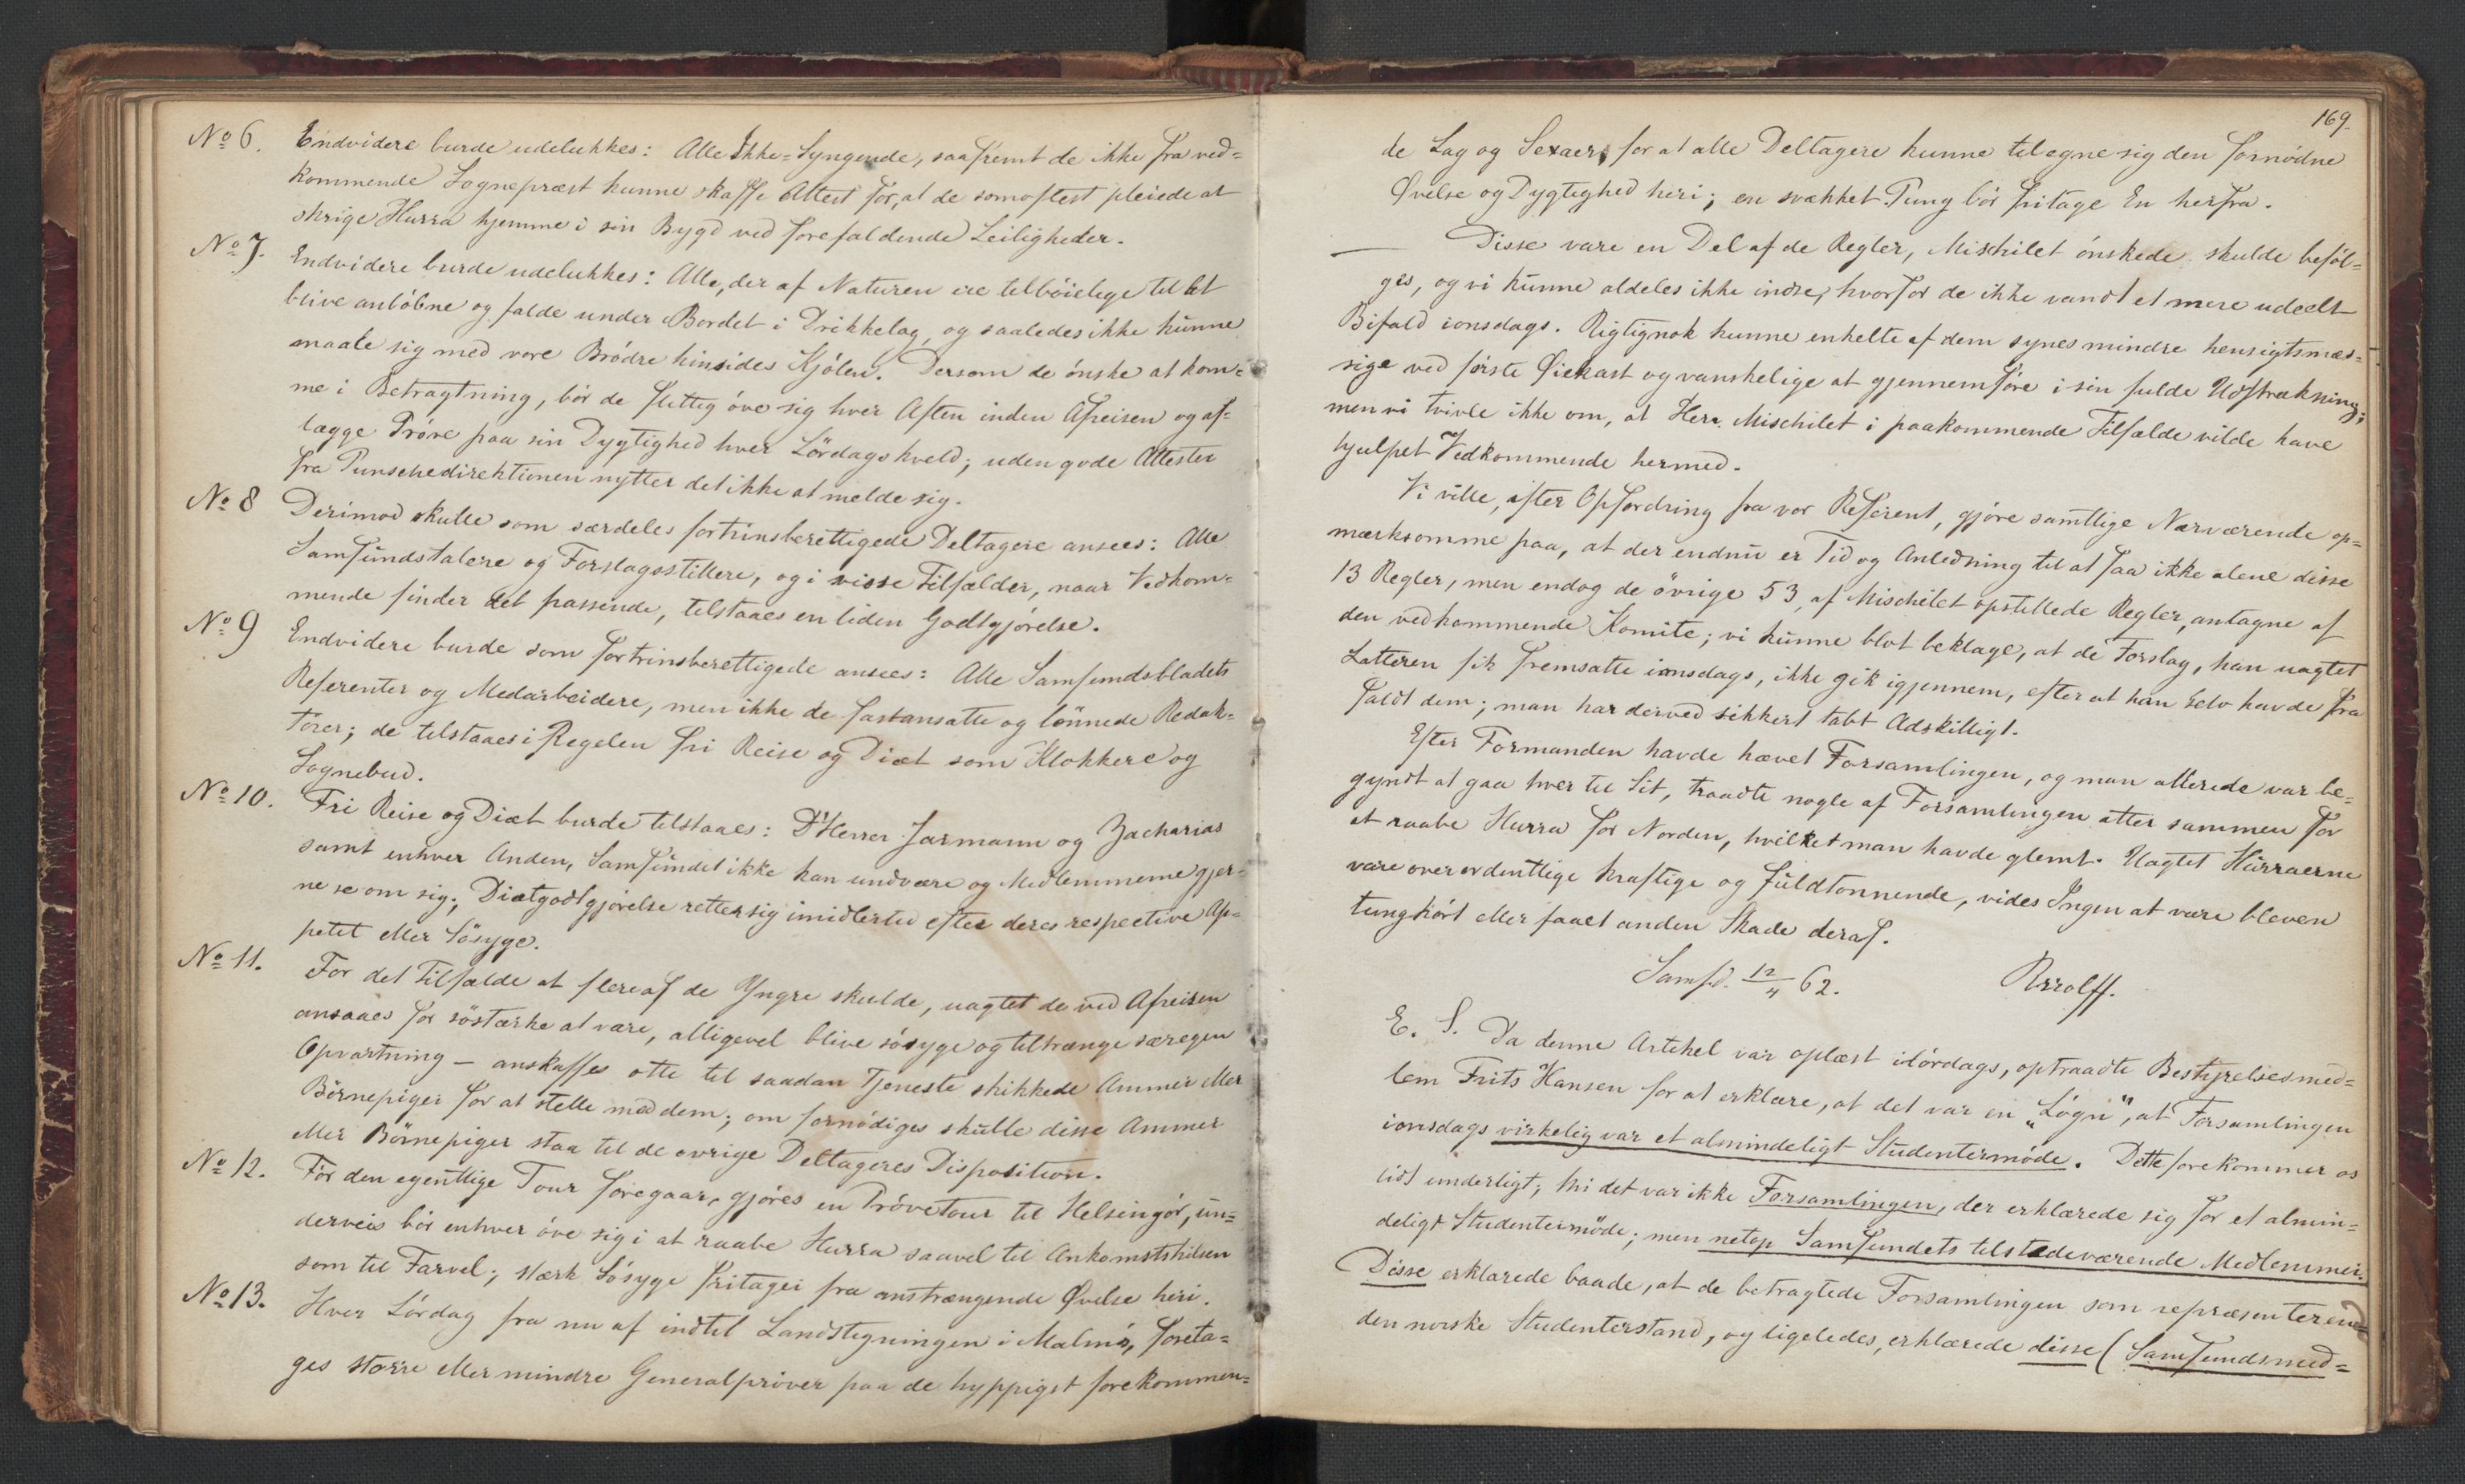 No 6. Endvidere burde udelukkes: Alle Ikke-Syngende, saafremt de ikke fra ved=
kommende Sognepræst kunne skaffe Attest for, at de somoftest pleiede at
skrige Hurra hjemme i sin Bygd ved forefaldende Leiligheder.
No 7. Endvidere burde udelukkes: Alle, der af Naturen ere tilböielige til at
blive anlöbne og falde under Bordet i Drikkelag, og saaledes ikke kunne
maale sig med vore Brödre hinsides Kjölen. Dersom de önske at kom=
me i Betragtning, bör de flittig öve sig hver Aften inden Afreisen og af=
lægge Pröve paa sin Dygtighed hver Lördagskveld; uden gode Attester
fra Punschedirektionen nytter det ikke at melde sig.
No 8 Derimod skulle som særdeles fortrinsberettigede Deltagere ansees: Alle
Samfundstalere og Forslagsstillere, og i visse Tilfælder, naar Vedkom=
mende finder det passende, tilstaaes en liden Godtgjörelse.
No 9 Endvidere burde som fortrinsberettigede ansees: Alle Samfundsbladets
Referenter og Medarbeidere, men ikke de fastansatte og lönnede Redak=
törer; de tilstaaes i Regelen fri Reise og Diæt som Klokkere og
Sognebud.
No 10. Fri Reise og Diæt burde tilstaaes: D'Herrer Jarmann og Zacharias
samt enhver Anden, Samfundet ikke kan undvære og Medlemmerne gjer=
ne se om sig; Diætgodtgjörelse retter sig imidlertid efter deres respective Ap=
petit eller Sösyge.
No 11. For det Tilfælde at flere af de Yngre skulde, uagtet de ved Afreisen
ansaaes for söstærke at være, alligevel blive sösyge og tiltrænge særegen
Opvartning – anskaffes otte til saadan Tjeneste skikkede Ammer eller
Börnepiger for at stelle med dem; om fornödiges skulle disse Ammer
eller Börnepiger staa til de övrige Deltageres Disposition.
No 12. För den egentlige Tour foregaar, gjöres en Prövetour til Helsingör, un=
derveis bör enhver öve sig i at raabe Hurra saavel til Ankomsthilsen
som til Farvel; stærk Sösyge fritager fra anstrængende Övelse heri.
No 13. Hver Lördag fra nu af indtil Landstigningen i Malmö, foreta=
ges större eller mindre Generalpröver paa de hyppigst forekommen=
169.
de Lag og Sexaer, for at alle Deltagere kunne tilegne sig den fornödne
Øvelse og Dygtighed heri; en svækket Pung bör fritage En herfra.
— Disse vare en Del af de Regler, Mischilet önskede skulde beföl=
ges, og vi kunne aldeles ikke indse, hvorfor de ikke vandt et mere udeelt
Bifald ionsdags. Rigtignok kunne enkelte af dem synes mindre hensigtsmæs=
sige ved förste Øiekast og vanskelige at gjennemföre i sin fulde Udstrækning;
men vi tvivle ikke om, at Herr Mischilet i paakommende Tilfælde vilde have
hjulpet Vedkommende hermed.
Vi ville, efter Opfordring fra vor Referent, gjöre samtlige Nærværende op=
mærksomme paa, at der endnu er Tid og Anledning til at faa ikke alene disse
13 Regler, men endog de övrige 53, af Mischilet opstillede Regler, antagne af
den vedkommende Komite; vi kunne blot beklage, at de Forslag, han uagtet
Latteren fik fremsatte ionsdags, ikke gik igjennem, efter at han selv havde fra=
faldt dem; man har derved sikkert tabt Adskilligt.
Efter Formanden havde hævet Forsamlingen, og man allerede var be=
gyndt at gaa hver til Sit, traadte nogle af Forsamlingen atter sammen for
at raabe Hurra for Norden, hvilket man havde glemt. Uagtet Hurraerne
vare overordentlige kraftige og fuldtonnende, vides Ingen at være bleven
tunghört eller faaet anden Skade deraf.
Samfd. 12/4 62. Rrrolff.
E. S. Da denne Artikel var oplæst ilördags, optraadte Bestyrelsesmed=
lem Frits Hansen for at erklære, at det var en „Lögn", at Forsamlingen
ionsdags virkelig var et almindeligt Studentermöde. Dette forekommer os
lidt underligt; thi det var ikke Forsamlingen, der erklærede sig for et almin=
deligt Studentermöde; men netop Samfundets tilstedeværende Medlemmer.
Disse erklærede baade, at de betragtede Forsamlingen som repræsenterende
den norske Studenterstand, og ligeledes, erklærede disse (Samfundsmed=